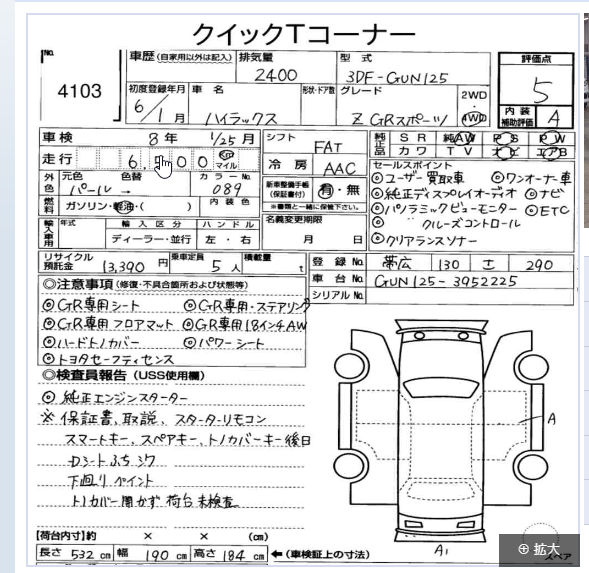 クイックTコーナー
No. 4103
車歴 (自家用以外は記入) 排気量 2400 型式 3DF-GUN125
初度登録年月 6/1月 車名 ハイラックス 形状・ドア数 グレード Z GRスポーツ 2WD 4WD
評価点 5
内装補助評価 A
車検 8年 1/25月 シフト FAT
走行 6,500 km マイル 冷房 AAC
純正品 SR 純AW PS PW
カワ TV ナビ エアB
外色 元色 パール → 色替 カラーNo. 089
燃料 ガソリン・軽油・( ) 内装色
新車整備手帳 (保証書付) 有・無
※書類と一緒に保管下さい。
輸入車用 年式 輸入区分 ディーラー・並行 ハンドル 左・右
名義変更期限 月 日
セールスポイント
◎ユーザー買取車 ◎ワンオーナー車
◎純正ディスプレイオーディオ ◎ナビ
◎パノラミックビューモニター ◎ETC
◎クルーズコントロール
◎クリアランスソナー
リサイクル預託金 13,390円 乗車定員 5人 積載量 t
登録No. 帯広 130 290
車台No. GUN125-3952225
シリアルNo.
◎注意事項 (修復・不具合箇所および状態等)
◎GR専用シート ◎GR専用・ステアリング
◎GR専用フロアマット ◎GR専用18インチAW
◎ハードトノカバー ◎パワーシート
◎トヨタセーフティセンス
◎検査員報告 (USS使用欄)
◎純正エンジンスターター
※保証書、取説、スターターリモコン
スマートキー、スペアキー、トノカバーキー後日
Dシートふちシワ
下廻りペイント
トノカバー開かず荷台未検査
A
A1
【荷台内寸】約 × × (cm)
長さ 532cm 幅 190cm 高さ 184cm ←(車検証上の寸法)
スペア
⊕ 拡大